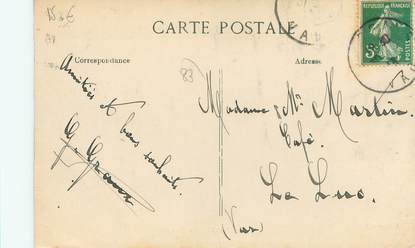 CARTE POSTALE
Correspondance
Adresse
RÉPUBLIQUE FRANÇAISE
5c
POSTES
VAR
83
Amitiés et bons souhaits.
Madame & Mr Martin
Café
Le Luc.
(Var)